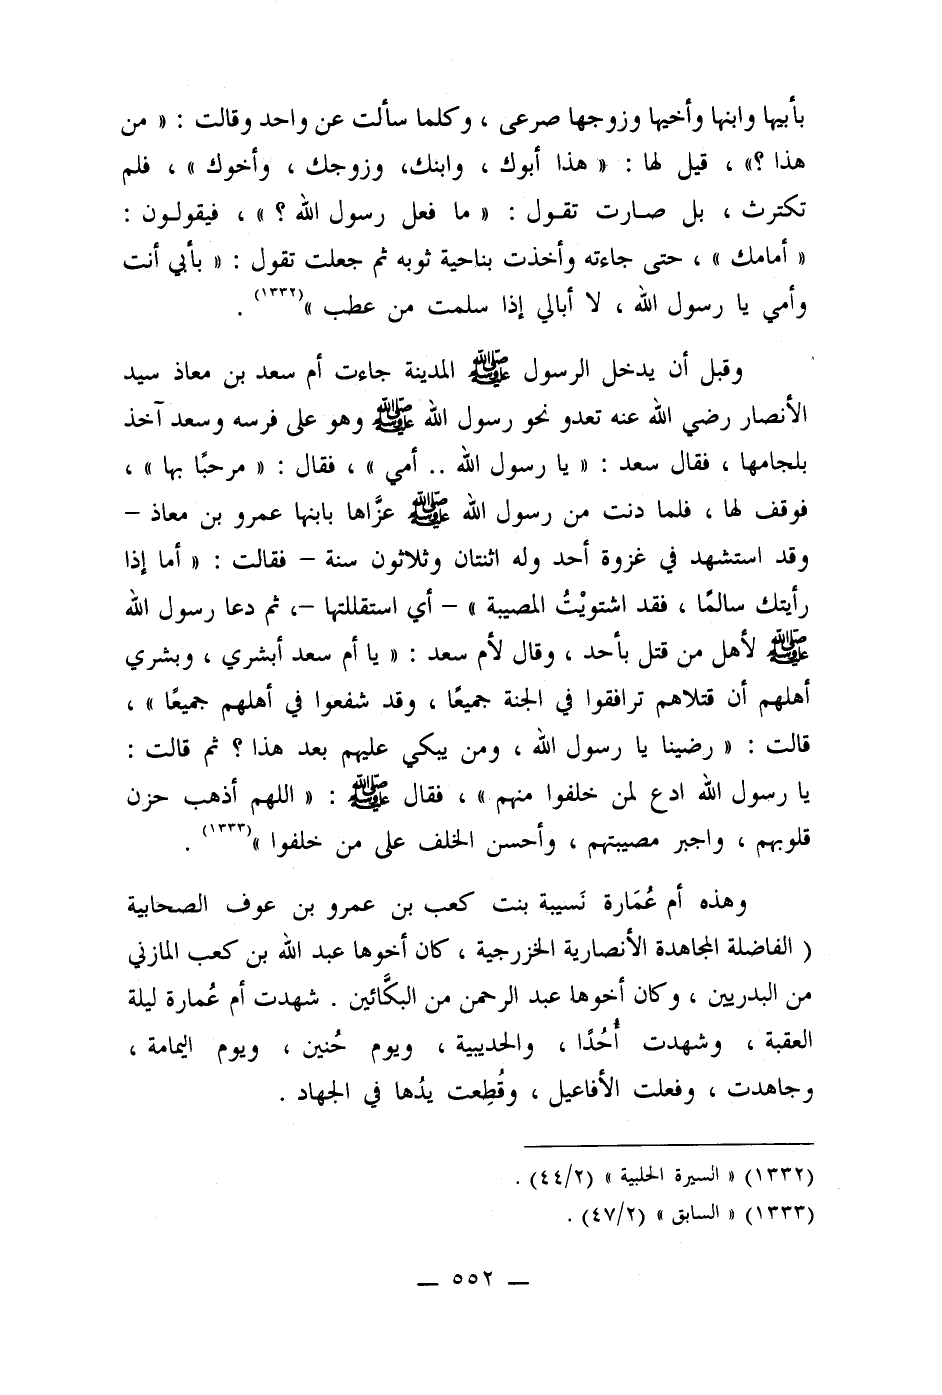 بأبيها وابنها وأخيها وزوجها صرعى ، وكلما سألت عن واحد وقالت : « من
هذا ؟» ، قيل لها : « هذا أبوك ، وابنك، وزوجك ، وأخوك » ، فلم
تكترث ، بل صارت تقول : « ما فعل رسول الله ؟ » ، فيقولون :
« أمامك » ، حتى جاءته وأخذت بناحية ثوبه ثم جعلت تقول : « بأبي أنت
وأمي يا رسول الله ، لا أبالي إذا سلمت من عطب »(١٣٣٢) .
وقبل أن يدخل الرسول ﷺ المدينة جاءت أم سعد بن معاذ سيد
الأنصار رضي الله عنه تعدو نحو رسول الله ﷺ وهو على فرسه وسعد آخذ
بلجامها ، فقال سعد : « يا رسول الله .. أمي » ، فقال : « مرحبًا بها » ،
فوقف لها ، فلما دنت من رسول الله ﷺ عزَّاها بابنها عمرو بن معاذ –
وقد استشهد في غزوة أحد وله اثنتان وثلاثون سنة – فقالت : « أما إذا
رأيتك سالمًا ، فقد اشتويْتُ المصيبة » – أي استقللتها –، ثم دعا رسول الله
ﷺ لأهل من قتل بأحد ، وقال لأم سعد : « يا أم سعد أبشري ، وبشري
أهلهم أن قتلاهم ترافقوا في الجنة جميعًا ، وقد شفعوا في أهلهم جميعًا » ،
قالت : « رضينا يا رسول الله ، ومن يبكي عليهم بعد هذا ؟ ثم قالت :
يا رسول الله ادع لمن خلفوا منهم » ، فقال ﷺ : « اللهم أذهب حزن
قلوبهم ، واجبر مصيبتهم ، وأحسن الخلف على من خلفوا »(١٣٣٣) .
وهذه أم عُمَارة نَسيبة بنت كعب بن عمرو بن عوف الصحابية
( الفاضلة المجاهدة الأنصارية الخزرجية ، كان أخوها عبد الله بن كعب المازني
من البدريين ، وكان أخوها عبد الرحمن من البكَّائين . شهدت أم عُمارة ليلة
العقبة ، وشهدت أُحُدًا ، والحديبية ، ويوم حُنين ، ويوم اليمامة ،
وجاهدت ، وفعلت الأفاعيل ، وقُطِعت يدُها في الجهاد .
(١٣٣٢) « السيرة الحلبية » (٤٤/٢) .
(١٣٣٣) « السابق » (٤٧/٢) .
— ٥٥٢ —